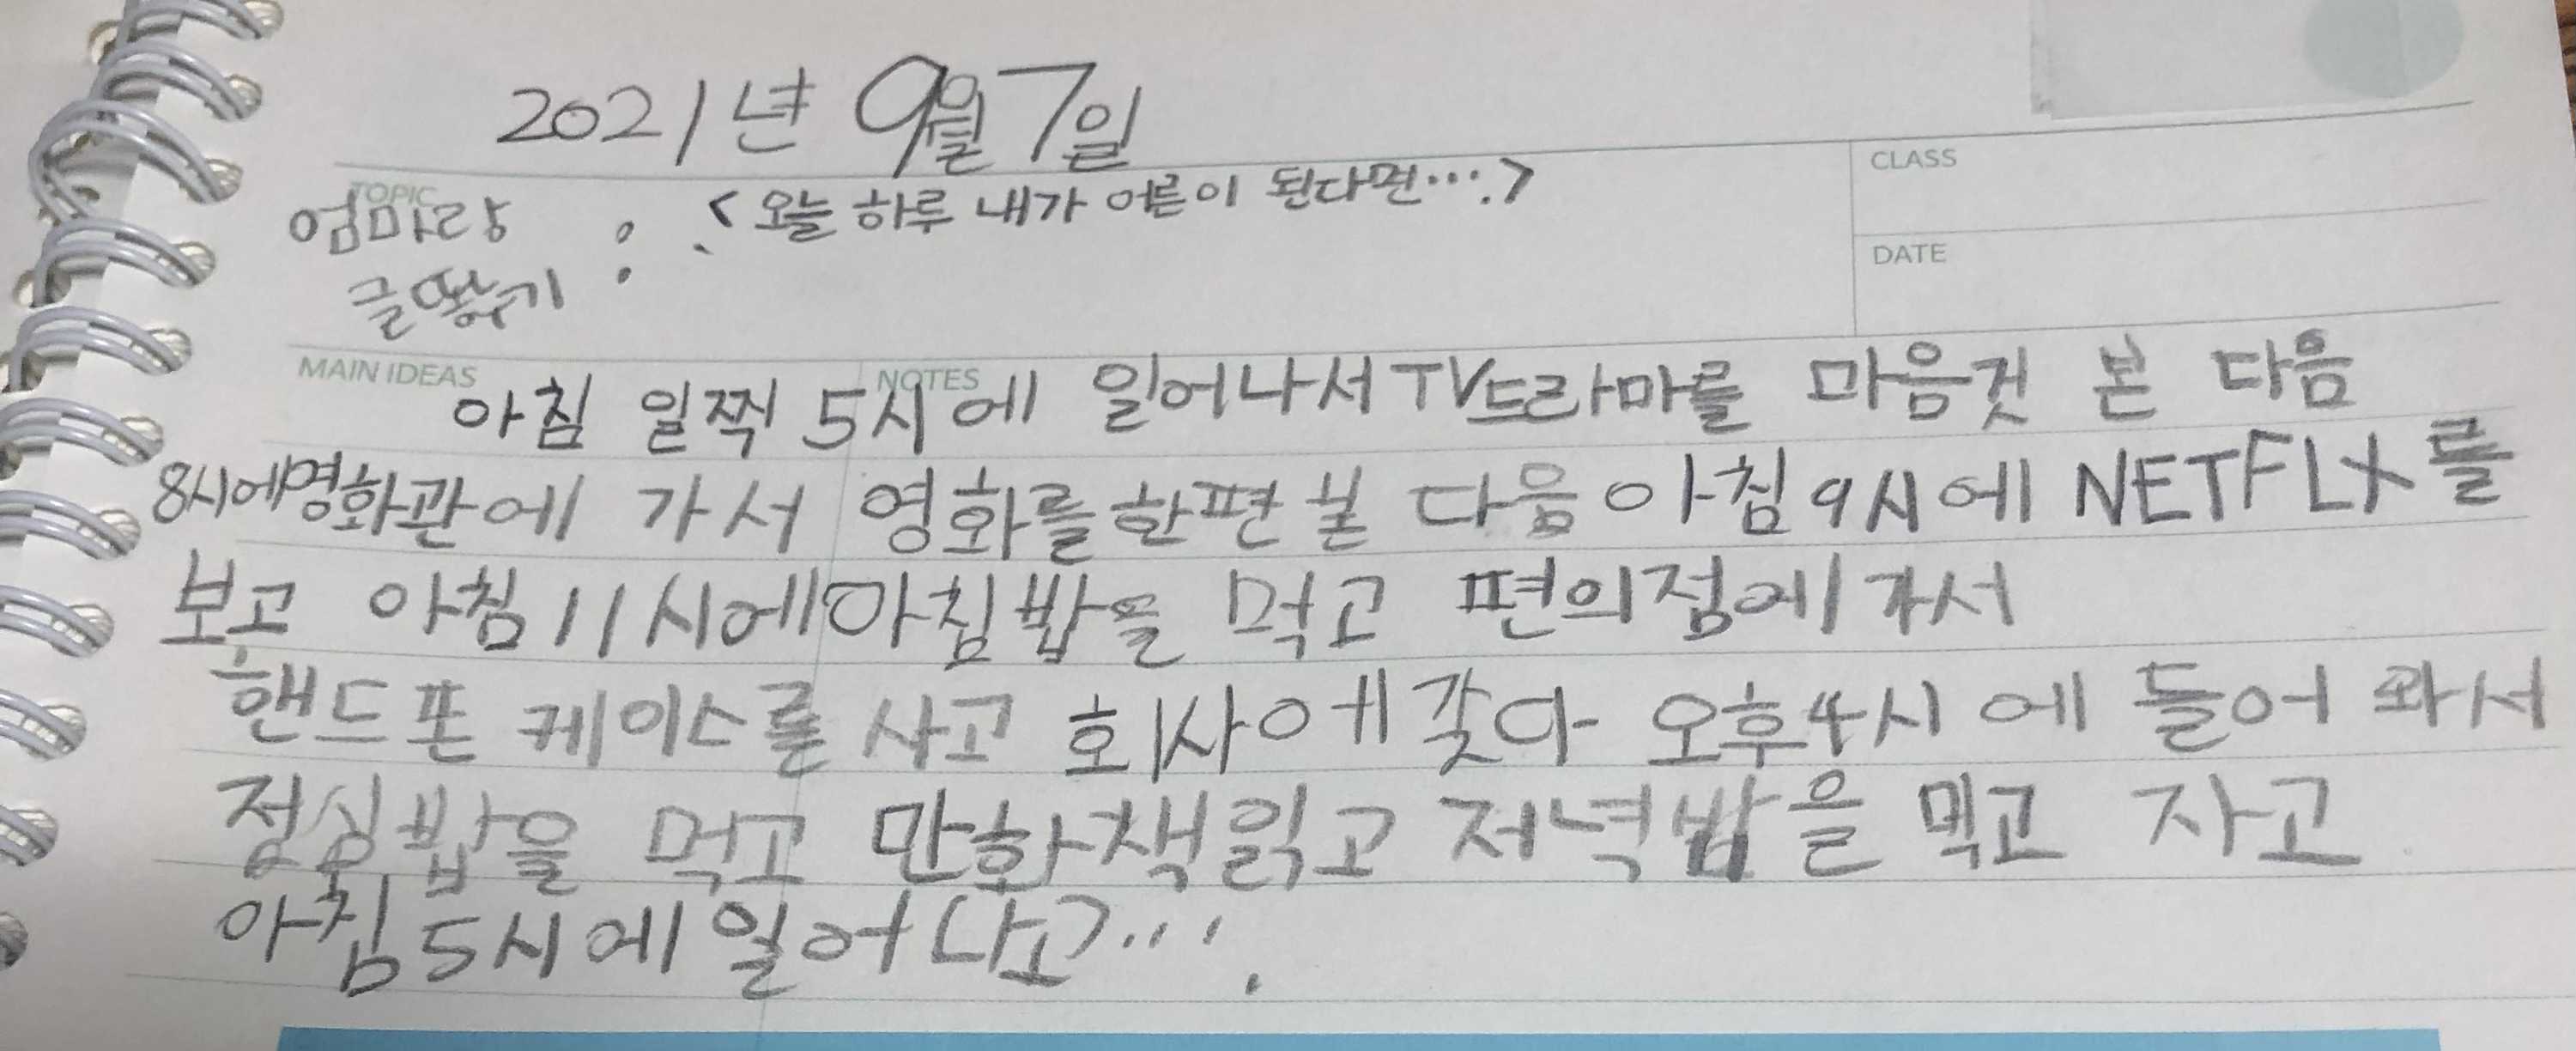 2021년 9월 7일
TOPIC
엄마랑 : <오늘 하루 내가 어른이 된다면….>
글짱기
CLASS
DATE
MAIN IDEAS
NOTES
아침 일찍 5시에 일어나서 TV드라마를 마음껏 본 다음
8시에영화관에 가서 영화를한편 본 다음 아침 9시에 NETFLX를
보고 아침 11시에아침밥을 먹고 편의점에가서
핸드폰 케이스를 사고 회사에 갖다 오후4시에 들어 와서
점심밥을 먹고 만화책읽고 저녁밥을 먹고 자고
아침5시에 일어나고….